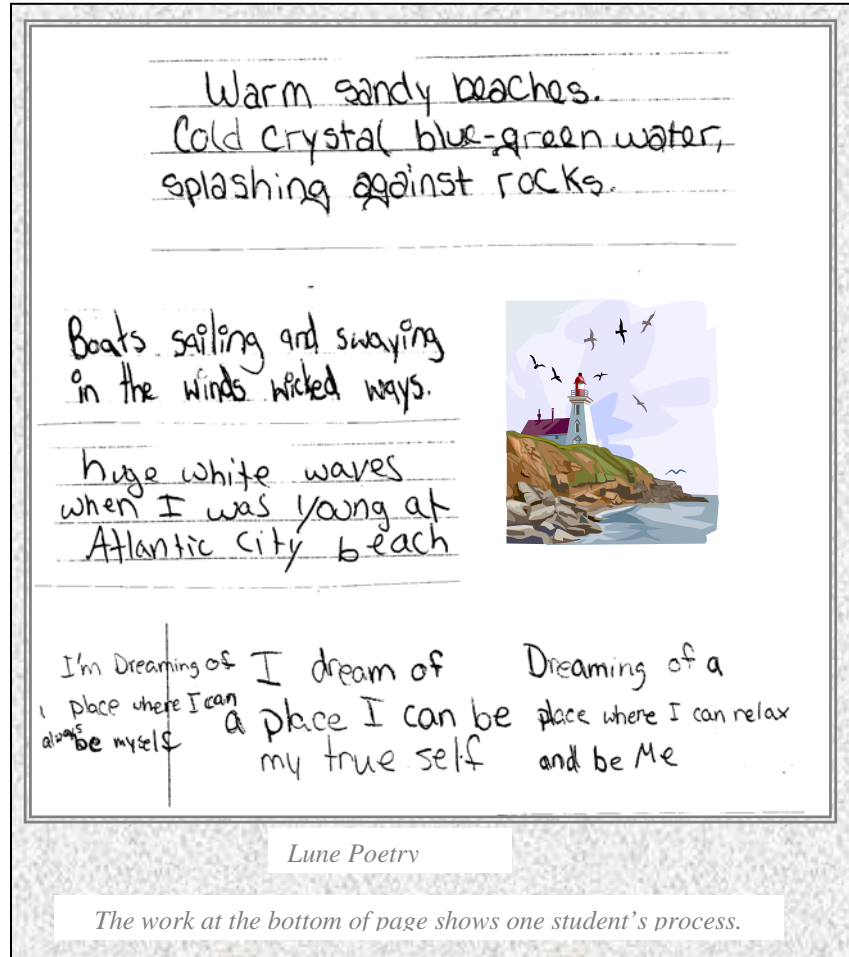 Warm sandy beaches.
Cold crystal blue-green water,
splashing against rocks.
Boats sailing and swaying
in the winds wicked ways.
huge white waves
when I was young at
Atlantic City beach
I'm Dreaming of
a place where I can
always be myself
I dream of
a place I can be
my true self
Dreaming of a
place where I can relax
and be Me
Lune Poetry
The work at the bottom of page shows one student's process.